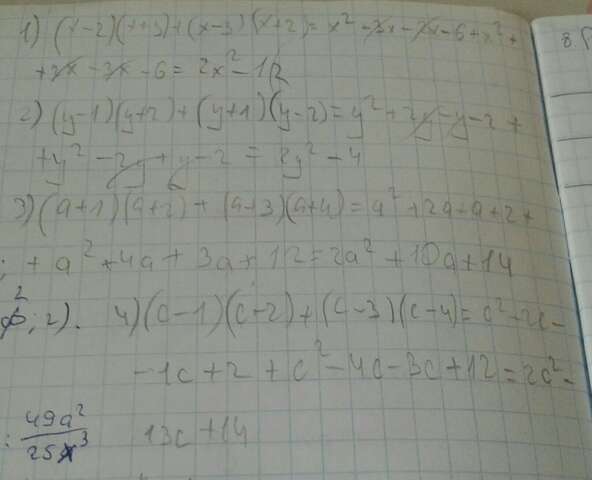 1) (x-2)(x+3)+(x-3)(x+2)= x² -3x-2x-6+x²+
+2x-3x-6= 2x²-12
2) (y-1)(y+2)+(y+1)(y-2)= y²+2y-y-2+
+y²-2y+y-2 = 2y²-4
3) (a+1)(a+2)+(a+3)(a+4)= a²+2a+a+2+
; + a²+4a+3a+12=2a²+10a+14
2); 2). 4) (c-1)(c-2)+(c-3)(c-4)= c²-2c-
-1c+2+c²-4c-3c+12=2c²-
: 49a²/25x³ 13c+14
8